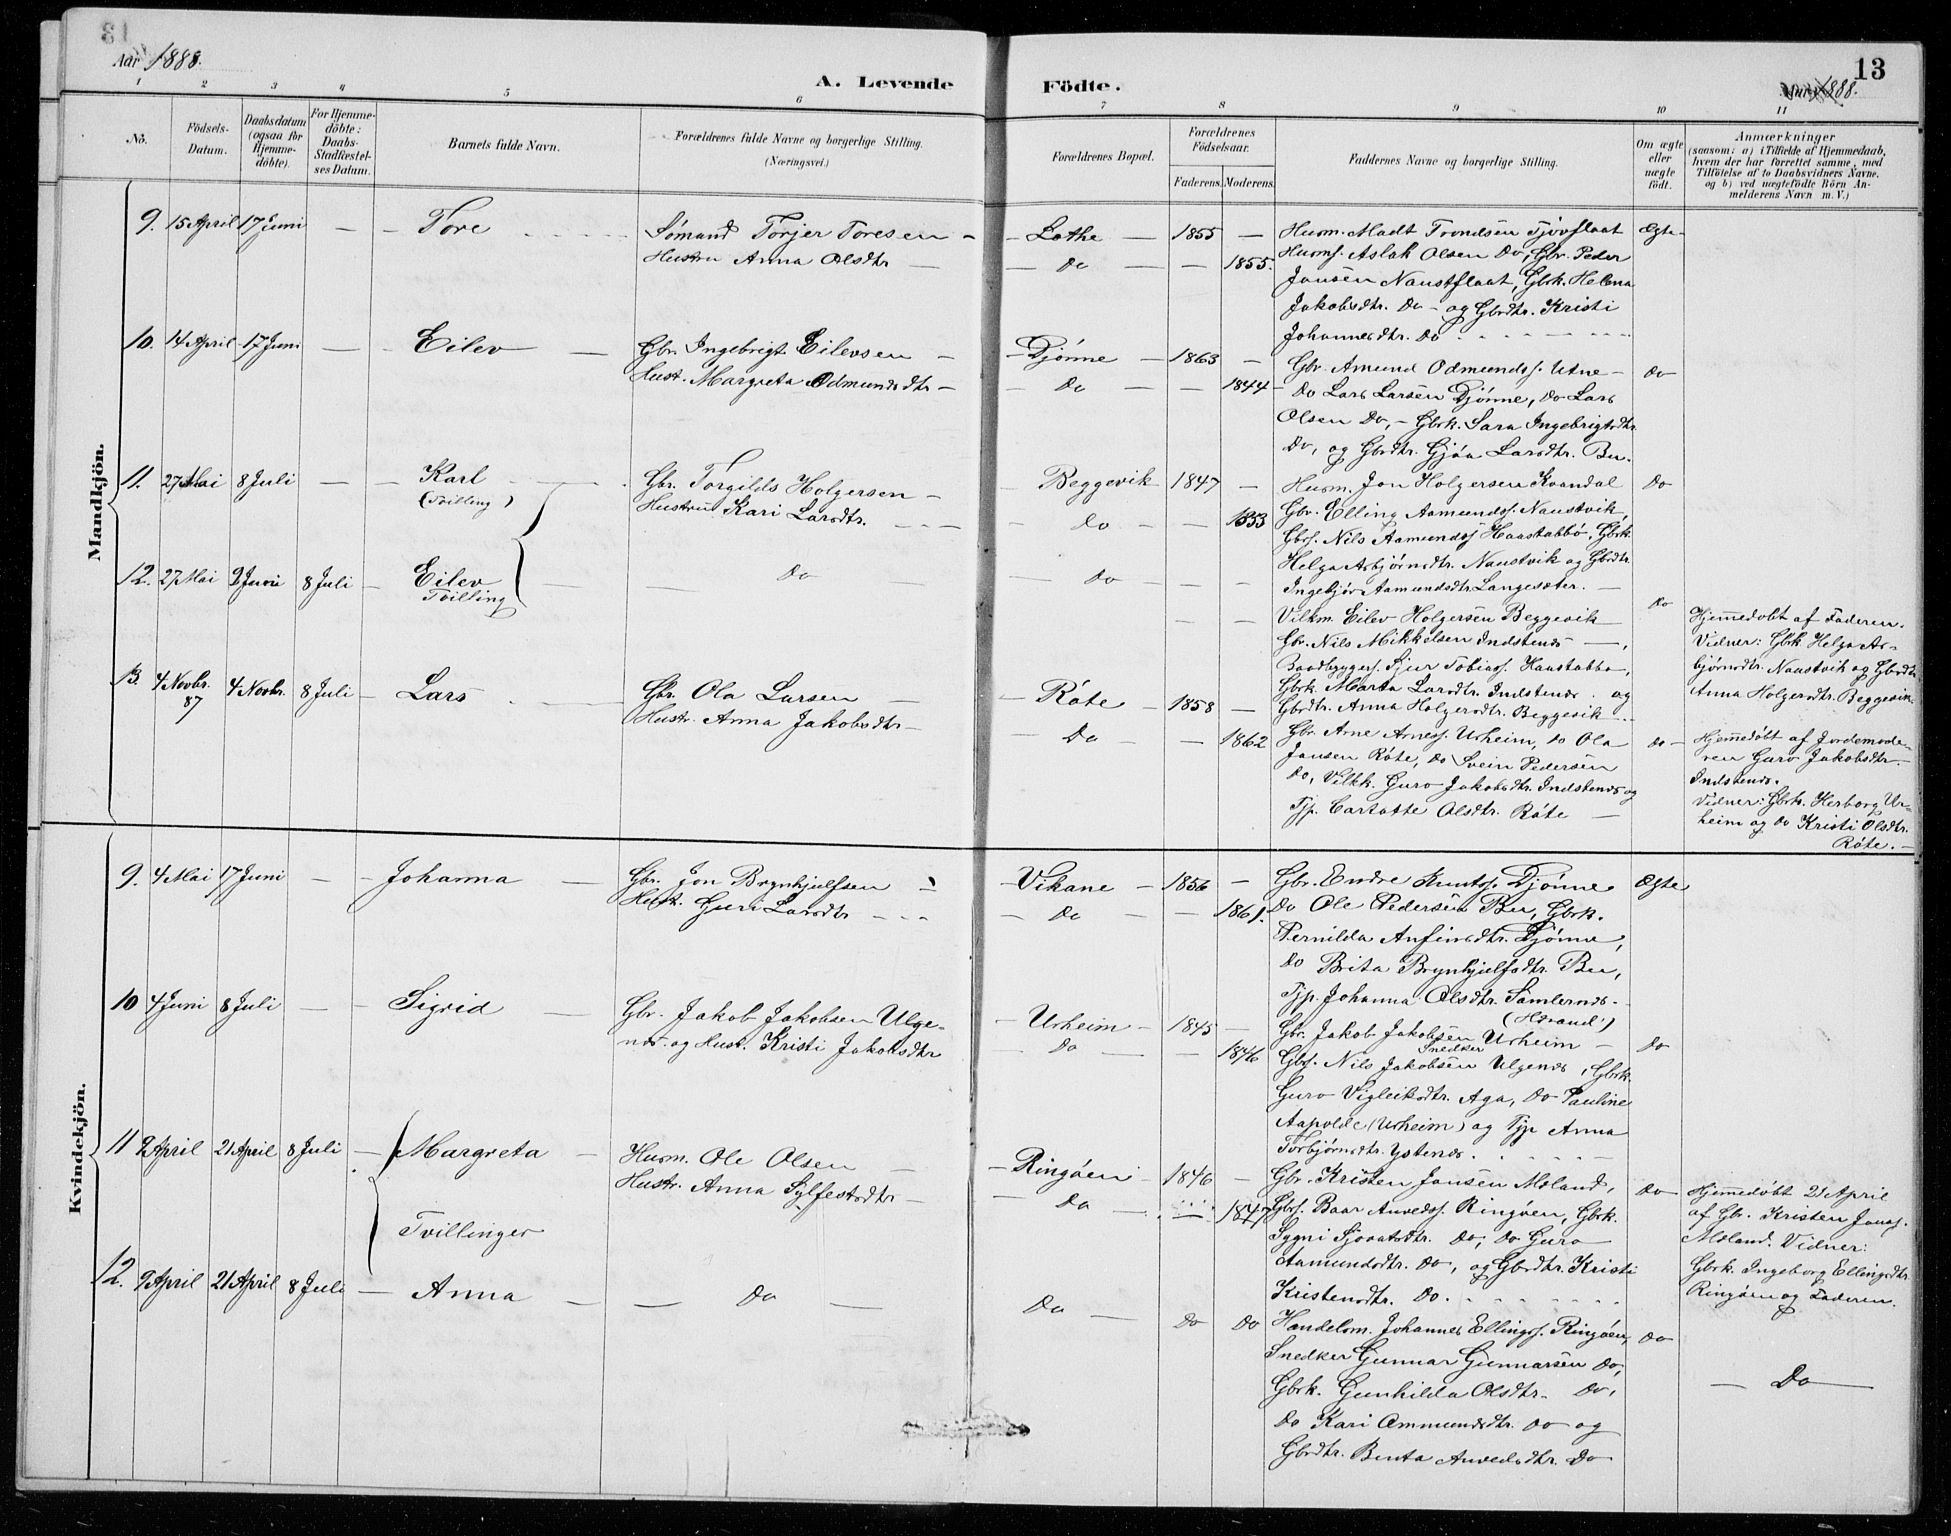 Aar 1888.
A. Levende
Födte.
13
1888.
1 2 3 4 5 6 7 8 9 10 11
No.
Födsels-Datum.
Daabsdatum (ogsaa for Hjemme-döbte).
For Hjemme-döbte: Daabs-Stadfæstel-ses Datum.
Barnets fulde Navn.
Forældrenes fulde Navne og borgerlige Stilling.
(Næringsvei.)
Forældrenes Bopæl.
Forældrenes Födselsaar.
Faderens. Moderens.
Faddernes Navne og borgerlige Stilling.
Om ægte eller uægte födt.
Anmærkninger
(saasom: a) i Tilfælde af Hjemmedaab,
hvem der har forrettet samme, med
Tilföielse af to Daabsvidners Navne,
og b) ved uægtefödte Börn An-
melderens Navn m. V.)
Mandkjön.
9. 15 April 17 Juni — — Tore
Sómand Torjer Toresen —
Hustru Anna Olsdtr —
— Lothe — 1855 —
— Do — — 1855.
Husm. Madt Trondsen Tjóvflaat
Husms. Aslak Olsen Do, Gbr. Peder
Jansen Naustflaat, Gbrk. Helena
Jakobsdtr. Do — og Gbrdtr. Kristi
Johannesdtr. Do
Ægte
10. 14 April 17 Juni — — Eilev —
Gbr. Ingebrigt Eilevsen —
Hust. Margreta Odmundsdtr —
— Djónne — 1863 —
— Do — — 1844
Gbr. Amund Odmundss. Utne —
Do Lars Larsen Djónne, Do Lars
Olsen Do, — Gbrk. Sara Ingebrigtsdtr.
Do, og Gbrdtr. Gjóa Larsdtr. Bu.
Do
11. 27 Mai 8 Juli — — Karl
(Tvilling)
Gbr. Torgilds Holgersen —
Hustru Kari Larsdtr.
Beggevik 1847 —
Do — — 1853
Husm. Jon Holgersen Kvandal
Gbr. Elling Aamundss. Naustvik,
Gbrs. Nils Aamundss Haastabbó, Gbrk.
Helga Asbjórnsdtr. Naustvik og Gbrdtr.
Ingebjór Aamundsdtr Langesæter. —
Do
12. 27 Mai 9 Juni 8 Juli — Eilev
Tvilling
— Do
Do — — —
Vilkm. Eilev Holgersen Beggevik
Gbr. Nils Mikkelsen Indstenes —,
Baadbyggers. Sjur Tobiass. Haastabbo,
Gbrk. Marta Larsdtr. Indstenes . og
Gbrdtr. Anna Holgersdtr. Beggevik
Do
Hjemmedobt af Faderen.
Vidner: Gbrk Helga As-
bjórnsdtr. Naustvik og Gbrdtr
Anna Holgersdtr. Beggevik.
13. 4 Novbr. 87 4 Novbr. 8 Juli — Lars
Gbr. Ola Larsen —
Hustr. Anna Jakobsdtr —
— Róte — 1858 —
— Do — 1862
Gbr. Arne Arness. Urheim, Do Ola
Jansen Róte, Do Svein Pedersen
Do, Vilkk. Guro Jakobsdtr. Indstenes og
Tjp. Olsdtr. Róte —
Do —
Hjemmedóbt af Jordemode-
ren Guro Jakobsdtr.
Indstenes.
Vidner: Gbrk. Herborg Ur-
heim og Do Kristi Olsdtr.
Róte. —
Kvindekjön.
9. 4 Mai 17 Juni — — Johanna —
Gbr. Jon Brynhjulfsen —
Hustr. Guri Larsdtr — — —
— Vikane — 1856 —
— Do — — 1861.
Gbr. Endre Knutss. Djónne
Do Ole Pedersen Bu, Gbrk.
Pernilda Anfinsdtr. Djónne,
Do Brita Brynhjulfsdtr. Bu,
Tjp. Johanna Olsdtr. Samlernes.
Ægte
10 4 Juni 8 Juli — — Sigrid —
Gbr. Jakob Jakobsen Ulge-
nes. og Hust. Kristi Jakobsdtr
— Urheim — 1845 —
— Do — — 1846
Gbr. Jakob Jakobsen Urheim —
Snedker
Gbrs. Nils Jakobsen Ulgenes, Gbrk.
Guro Vigleiksdtr. Aga, Do Pauline
Aapolde (Urheim) og Tjp Anna
Torbjórnsdtr. Ystenes.
Do
11 9 April 21 April 8 Juli — Margreta —
Husm. Ole Olsen —
Hustr. Anna Sylfestsdtr —
— Ringóen — 1846 —
— Do —
Gbr. Kristen Jansen Moland,
Gbrs. Baar Anvedss. Ringóen, Gbrk.
Sygni Sjovatsdtr. Do, Do Guro
Aamundsdtr. Do, og Gbrdtr. Kristi
Kristensdtr. Do.
Do
Hjemmedóbt 21 April
af Gbr. Kristen Janss.
Moland. Vidner:
Gbrk. Ingeborg Ellingsdtr
Ringóen og Faderen.
Tvillinger
12. 9 April 21 April 8 Juli — Anna —
— Do —
Do — Do Do
Handelsm. Johannes Ellingss. Ringóen,
Snedker Gunnar Gunnarsen Do,
Gbrk. Gunhilda Olsdtr. Do,
Do Kari Ommundsdtr. Do og
Gbrdtr. Benta Anvedsdtr. Do
Do
— Do —